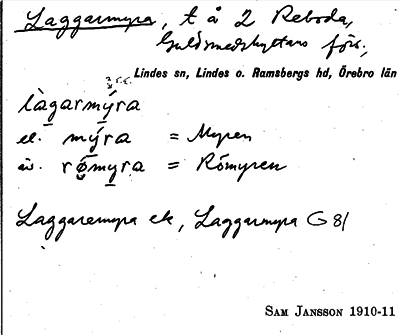 Laggarmyra, t å 2 Reboda,
Guldsmedshyttans förs.,
Lindes sn, Lindes o. Ramsbergs hd, Örebro län
làgarmýra
el. mýra = Myren
äv. rǿmyra = Römyren
Laggaremyra ek, Laggarmyra G 81
SAM JANSSON 1910-11